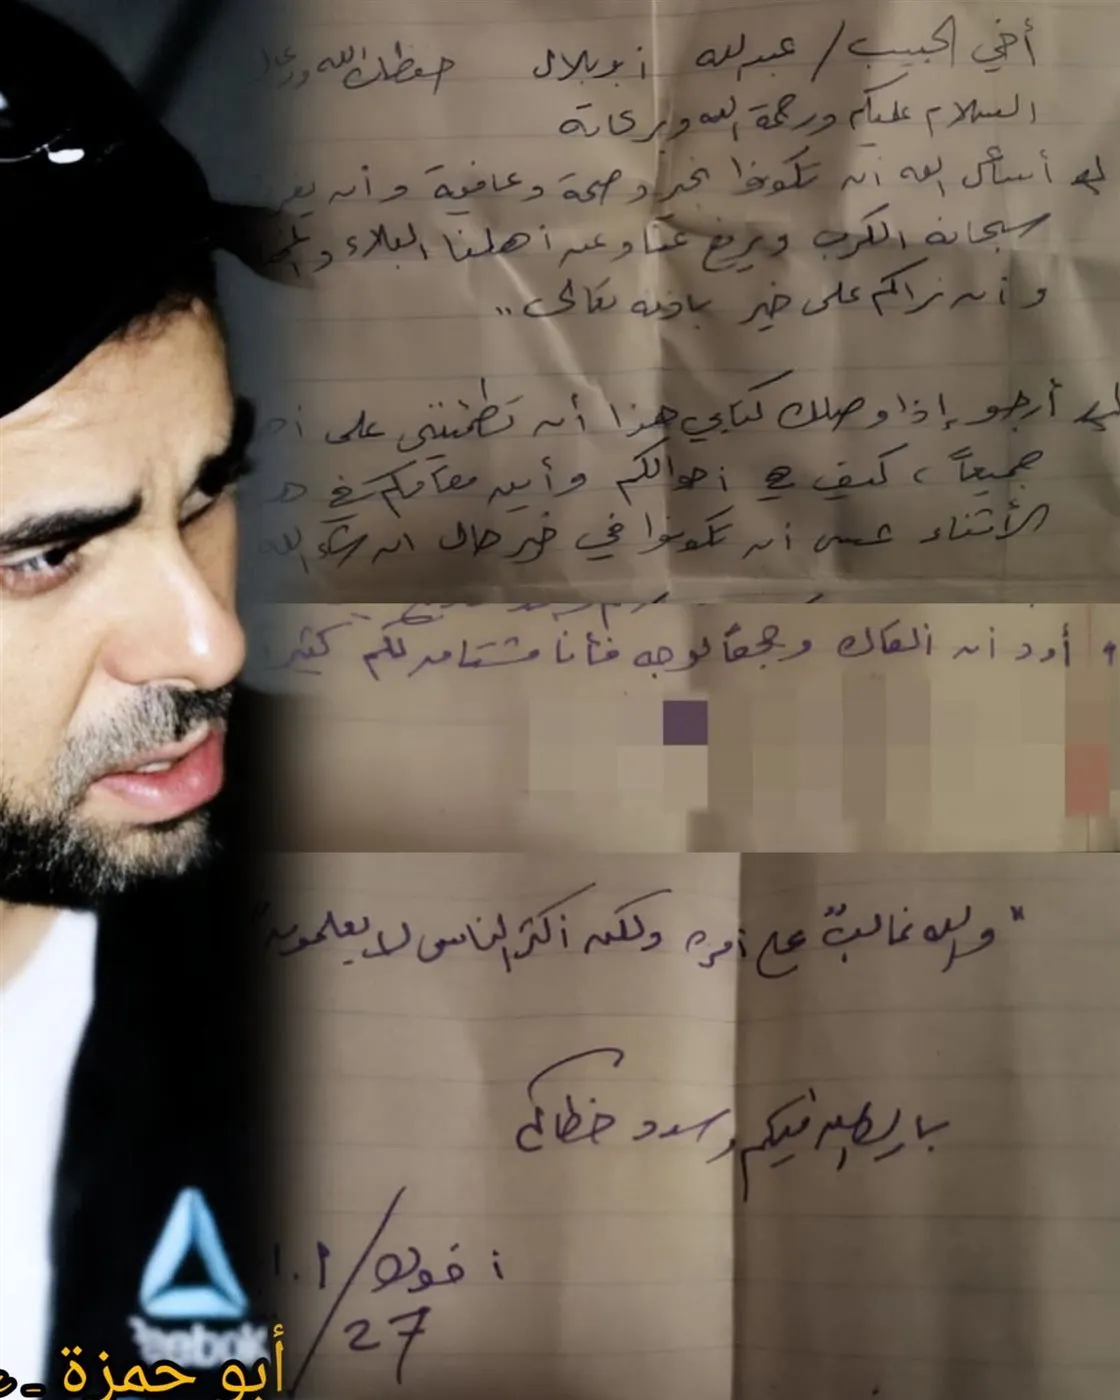 أخي الحبيب / عبدالله أبو بلال حفظك الله ورعا
السلام عليكم ورحمة الله وبركاته
أسأل الله أن تكونوا بخير وصحة وعافية وأن يفر
سبحانه الكرب ويرفع عنا وعن أهلنا البلاء
وأن نراكم على خير بإذنه تعالى ،،
أرجو إذا وصلك كتابي هذا أن تطمئنني على
جميعاً ، كيف هي أحوالكم وأين مقامكم في هـ
الأثناء عسى أن تكونوا في خير حال ان شاء الله
و أود أن ألقاك وجهاً لوجه فأنا مشتاق لكم كثيرا
"والله غالبٌ على أمره ولكن أكثر الناس لا يعلمون"
بارك الله فيكم وسدد خطاكم
أخوك / أ.أ
27
Reebok
أبو حمزة -